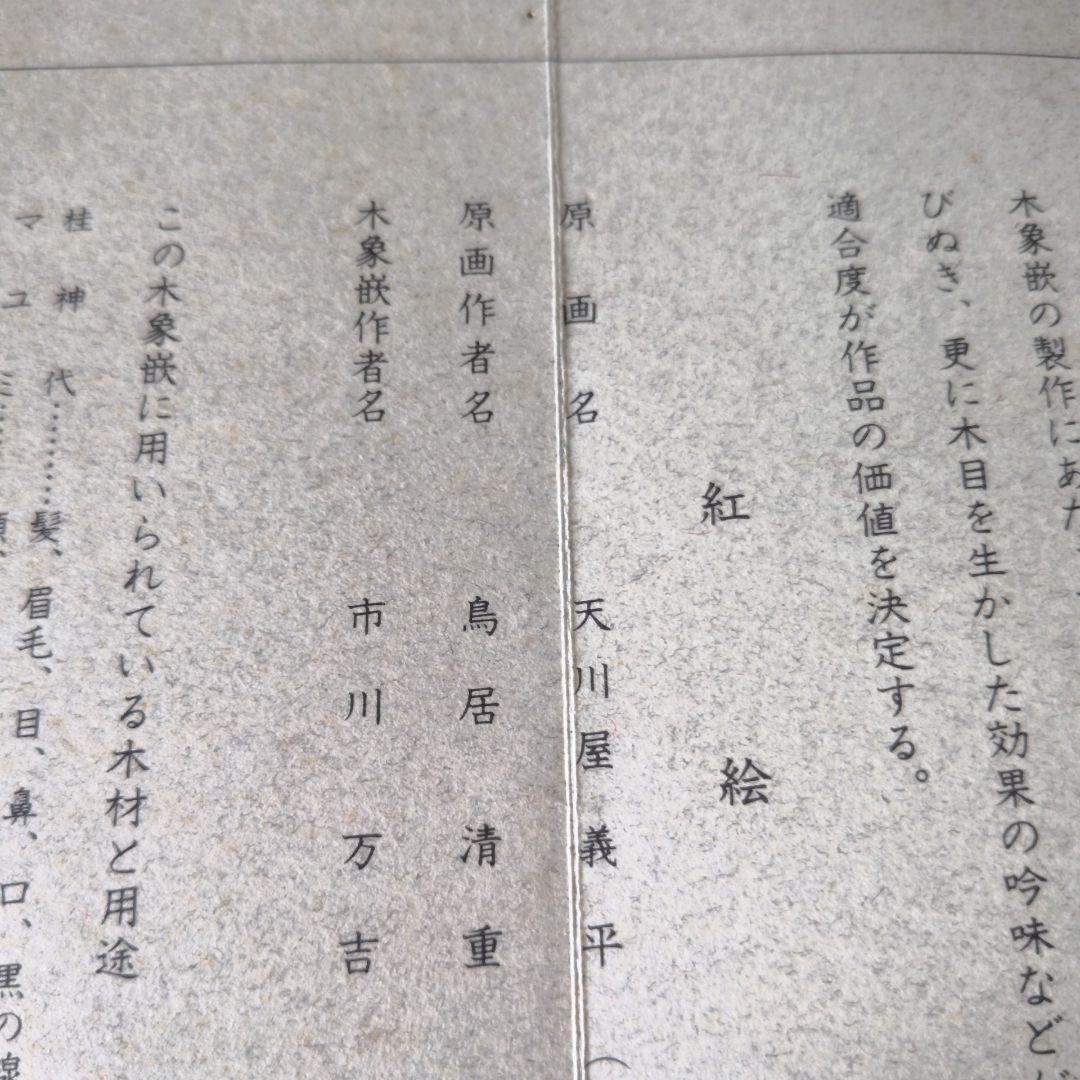 木象嵌の製作にあた
びぬき、更に木目を生かした効果の吟味などが
適合度が作品の価値を決定する。
紅絵
原画名 天川屋義平（
原画作者名 鳥居清重
木象嵌作者名 市川万吉
この木象嵌に用いられている木材と用途
桂神代………髪、眉毛、目、鼻、口、黒の線
マユミ……